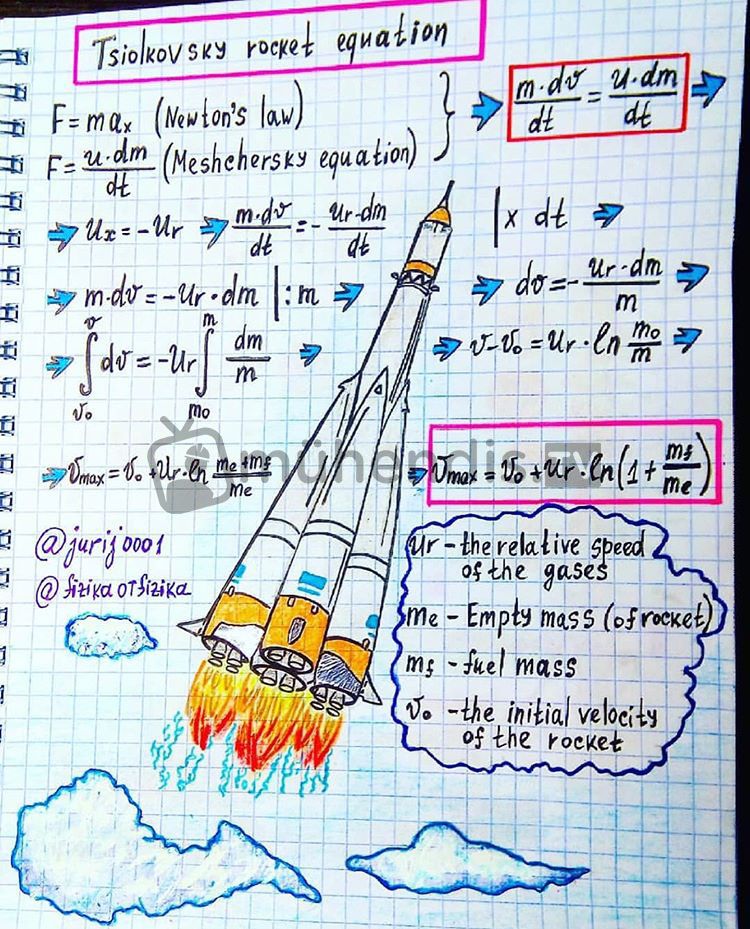 Tsiolkovsky rocket equation
F = maₓ (Newton's law)
F = u·dm/dt (Meshchersky equation)
m·dv/dt = u·dm/dt
uₓ = -ur
m·dv/dt = - ur·dm/dt
| x dt
m·dv = -ur·dm | : m
dv = - ur·dm/m
∫ᵥ₀ᵛ dv = -ur ∫ₘ₀ᵐ dm/m
v-v₀ = ur·ln m₀/m
vmax = v₀ + ur·ln me+mf/me
vmax = v₀ + ur·ln(1 + mf/me)
mühendis TV
@jurij0001
@fizikaOTfizika
ur - the relative speed
of the gases
me - Empty mass (of rocket)
mf - fuel mass
v₀ - the initial velocity
of the rocket